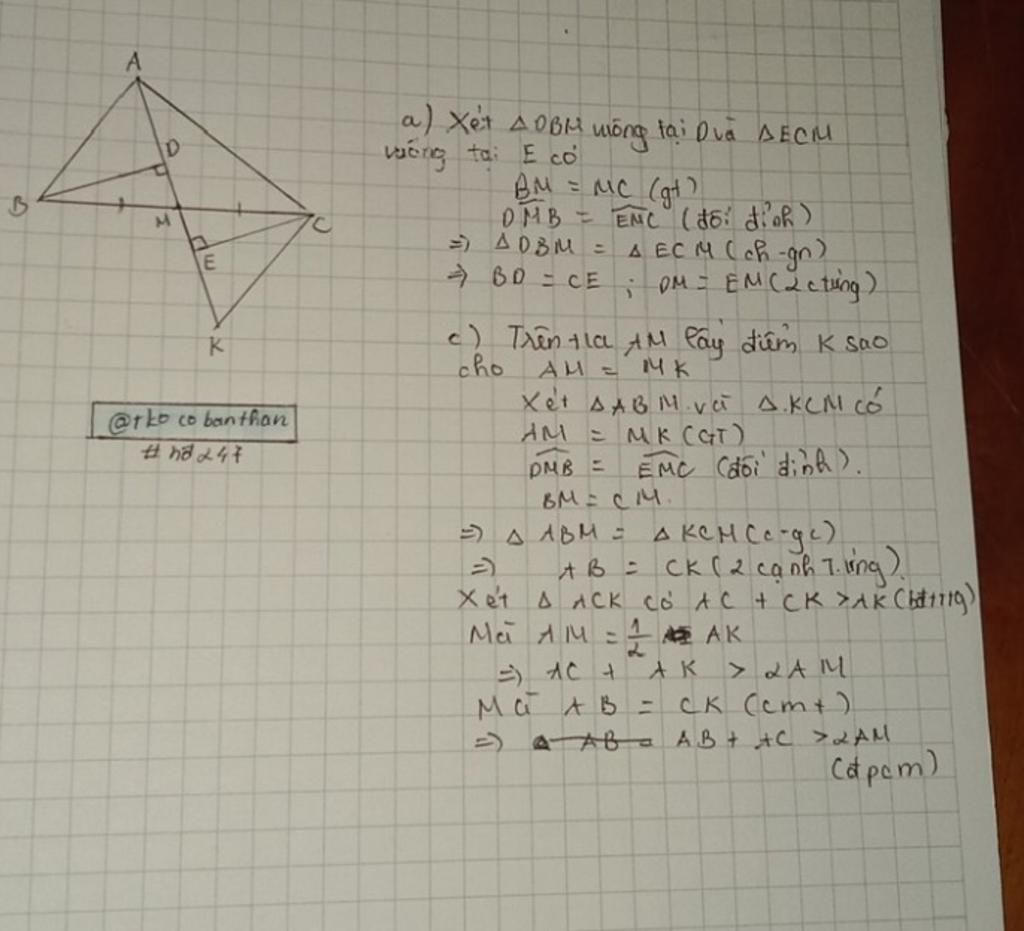 A
D
B
M
C
E
K
@tko co banthan
# hđ247
a) Xét △DBM vuông tại D và △ECM
vuông tại E có
BM = MC (gt)
DMB = EMC (đối đỉnh)
=> △DBM = △ECM (ch-gn)
=> BD = CE ; DM = EM (2 c tứng)
c) Trên tia AM lấy điểm K sao
cho AM = MK
Xét △ABM và △KCM có
AM = MK (GT)
DMB = EMC (đối đỉnh).
BM = CM.
=> △ABM = △KCM (c-gc)
=> AB = CK (2 cạnh T. ứng)
Xét △ACK có AC + CK > AK
Mà AM = 1/2 AK
=> AC + AK > 2AM
Mà AB = CK (cmt)
=> AB + AC > 2AM
(đpcm)